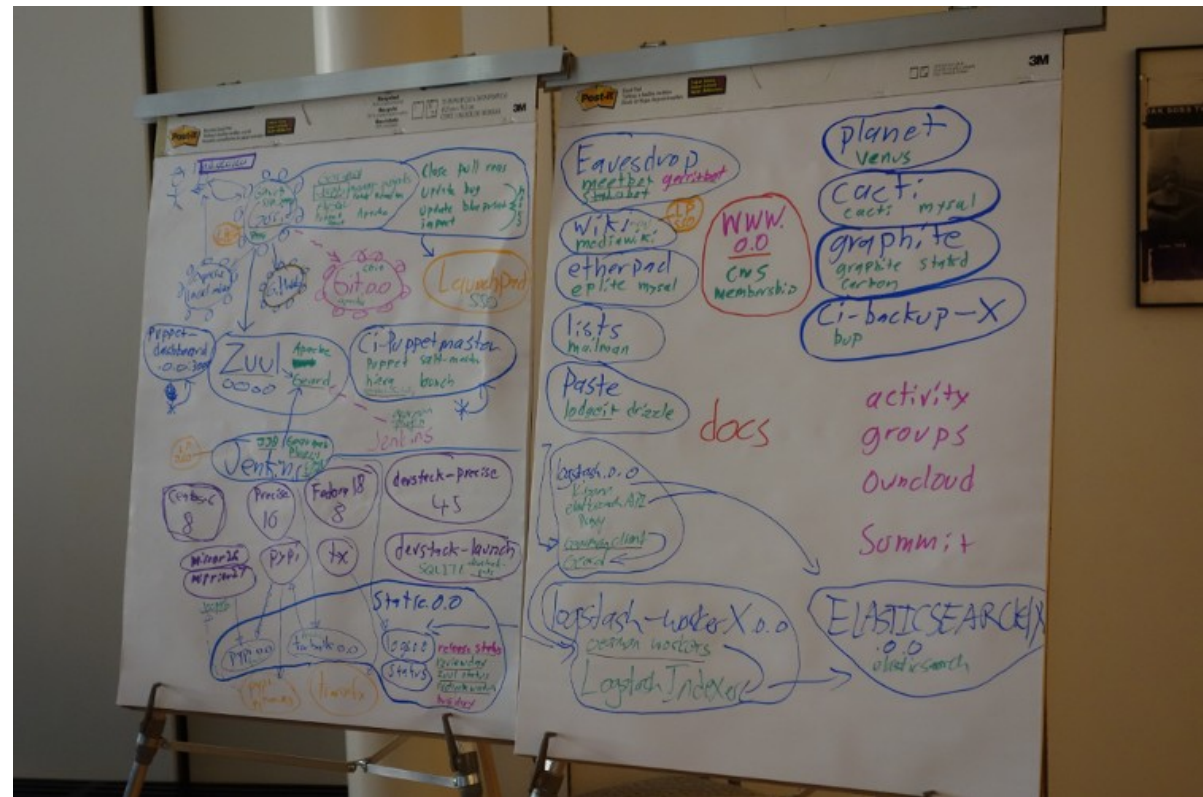 Post-it
3M
Close pull reqs
update bug
update blueprint
Apache
git.o.o
Launchpad
SSO
Puppet-
dashboard
Zuul
Apache
Geard
Ci-Puppetmaster
Puppet salt-master
hiera bunch
Jenkins
JJB
Jenkins
8
Precise
16
Fedora18
8
devstack-precise
45
mirror26
mirror27
pypi
tx
devstack-launch
Static.o.o
PYPI.o.o
tarballs.o.o
logs.o.o
Status
release status
reviewday
Zuul status
Post-it
3M
Eavesdrop
meetbot gerritbot
statusbot
wiki
mediawiki
LP
SSO
etherpad
eplite mysql
lists
mailman
Paste
lodgeit drizzle
WWW.
o.o
CMS
Membership
docs
planet
venus
cacti
cacti mysql
graphite
graphite statsd
carbon
Ci-backup-X
bup
activity
groups
Owncloud
Summit
logstash.o.o
Kibana
elasticsearch API
Proxy
Gearman client
Geard
logstash-workerX.o.o
Gearman workers
Logstash Indexer
ELASTICSEARCH
.o.o
elasticsearch